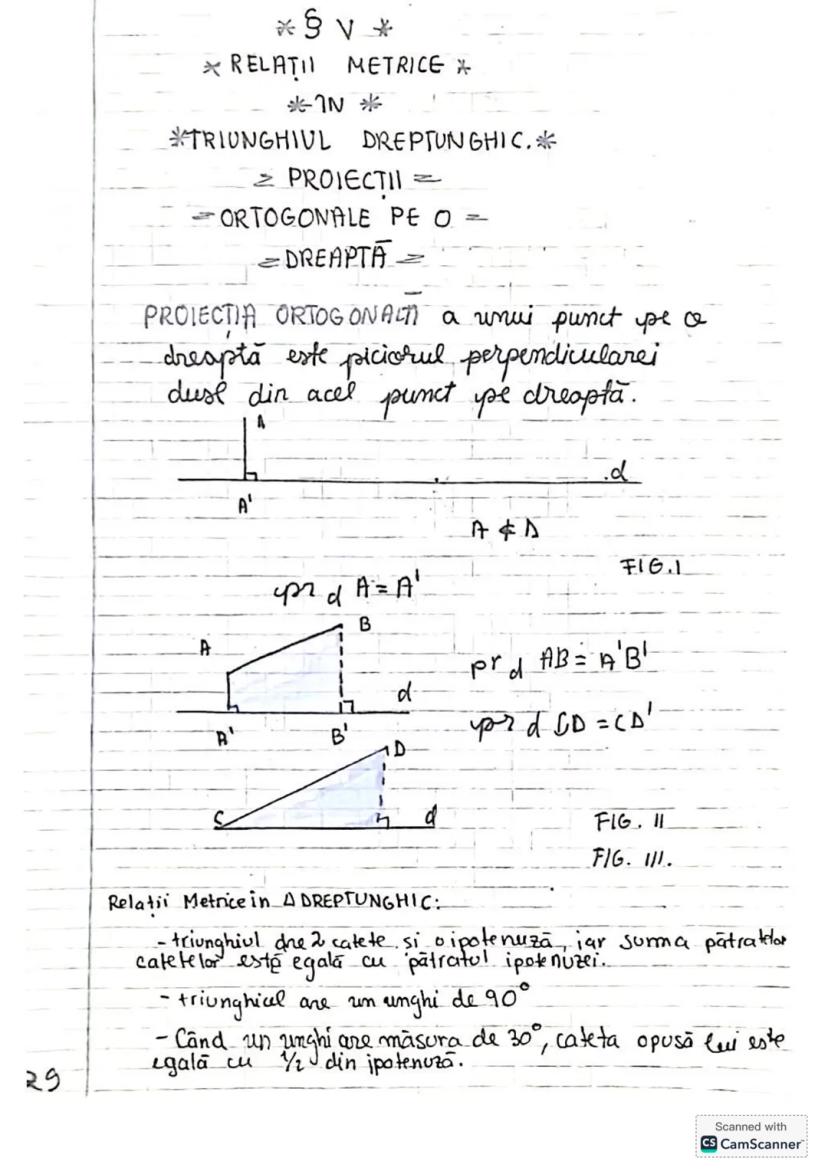 * § V *
* RELAȚII METRICE *
* ÎN *
* TRIUNGHIUL DREPTUNGHIC. *
= PROIECȚII =
= ORTOGONALE PE O =
= DREAPTĂ =
PROIECȚIA ORTOGONALĂ a unui punct pe o
dreaptă este piciorul perpendicularei
duse din acel punct pe dreaptă.
A
d
A'
A ∉ D
FIG. I
pr d A = A'
B
A
pr d AB = A'B'
d
pr d CD = CD'
A' B'
D
C d
FIG. II
FIG. III.
Relații Metrice în Δ DREPTUNGHIC:
- triunghiul are 2 catete și o ipotenuză, iar suma pătratelor
catetelor este egală cu pătratul ipotenuzei.
- triunghiul are un unghi de 90°
- Când un unghi are măsura de 30°, cateta opusă lui este
egală cu 1/2 din ipotenuză.
29
Scanned with
CS CamScanner